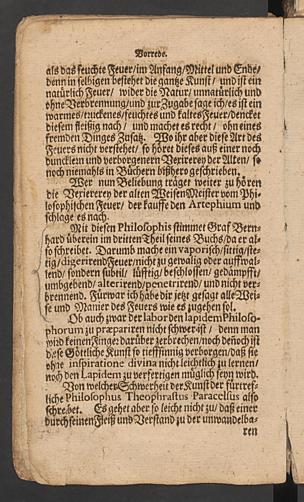 Vorrede.
als das feuchte Feuer/ im Anfang/ Mittel und Ende/
denn in selbigen bestehet die gantze Kunst/ und ist ein
natürlich Feuer/ wider die Natur/ unnatürlich und
ohne Verbrennung/ und zur Zugabe sage ich/ es ist ein
warmes/ truckenes/ feuchtes und kaltes Feuer/ dencket
diesem fleißig nach/ und machet es recht/ ohn eines
frembden Dinges Zusatz. Wo ihr aber diese Art des
Feuers nicht verstehet/ so höret dieses auß einer noch
duncklern und verborgenern Vexirerey der Alten/ so
noch niemahls in Büchern bißhero geschrieben.
Wer nun Beliebung träget weiter zu hören
die Vexiererey der alten Weisen Meister vom Phi-
losophischen Feuer/ der kauffe den Artephium und
schlage es nach.
Mit diesen Philosophis stimmet Graf Bern-
hard überein im dritten Theil seines Buchs/ da er al-
so schreibet. Darumb mache ein vaporisch/ sittig/ ste-
tig/ digerirend Feuer/ nicht zu gewalig oder auffwal-
lend/ sondern subtil/ lüfftig/ beschlossen/ gedämpfft/
umbgebend/ alterirend/ penetrirend/ und nicht ver-
brennend. Fürwar ich habe dir jetzt gesagt alle Wei-
se und Manier des Feuers wie es zugehen sol.
Ob auch zwar der labor den lapidem Philoso-
phorum zu præpariren nicht schwer ist/ denn man
wird keinen Finger darüber zerbrechen/ noch deñoch ist
diese Göttliche Kunst so tieffsinnig verborgen/ daß sie
ohne inspiratione divina nicht leichtlich zu lernen/
noch den Lapidem zu verfertigen müglich seyn wird.
Von welcher Schwerheit der Kunst der fürtref-
liche Philosophus Theophrastus Paracelsus also
schreibet. Es gehet aber so leichte nicht zu/ daß einer
durch seinen Fleiß und Verstand zu der unwandelba-
ren